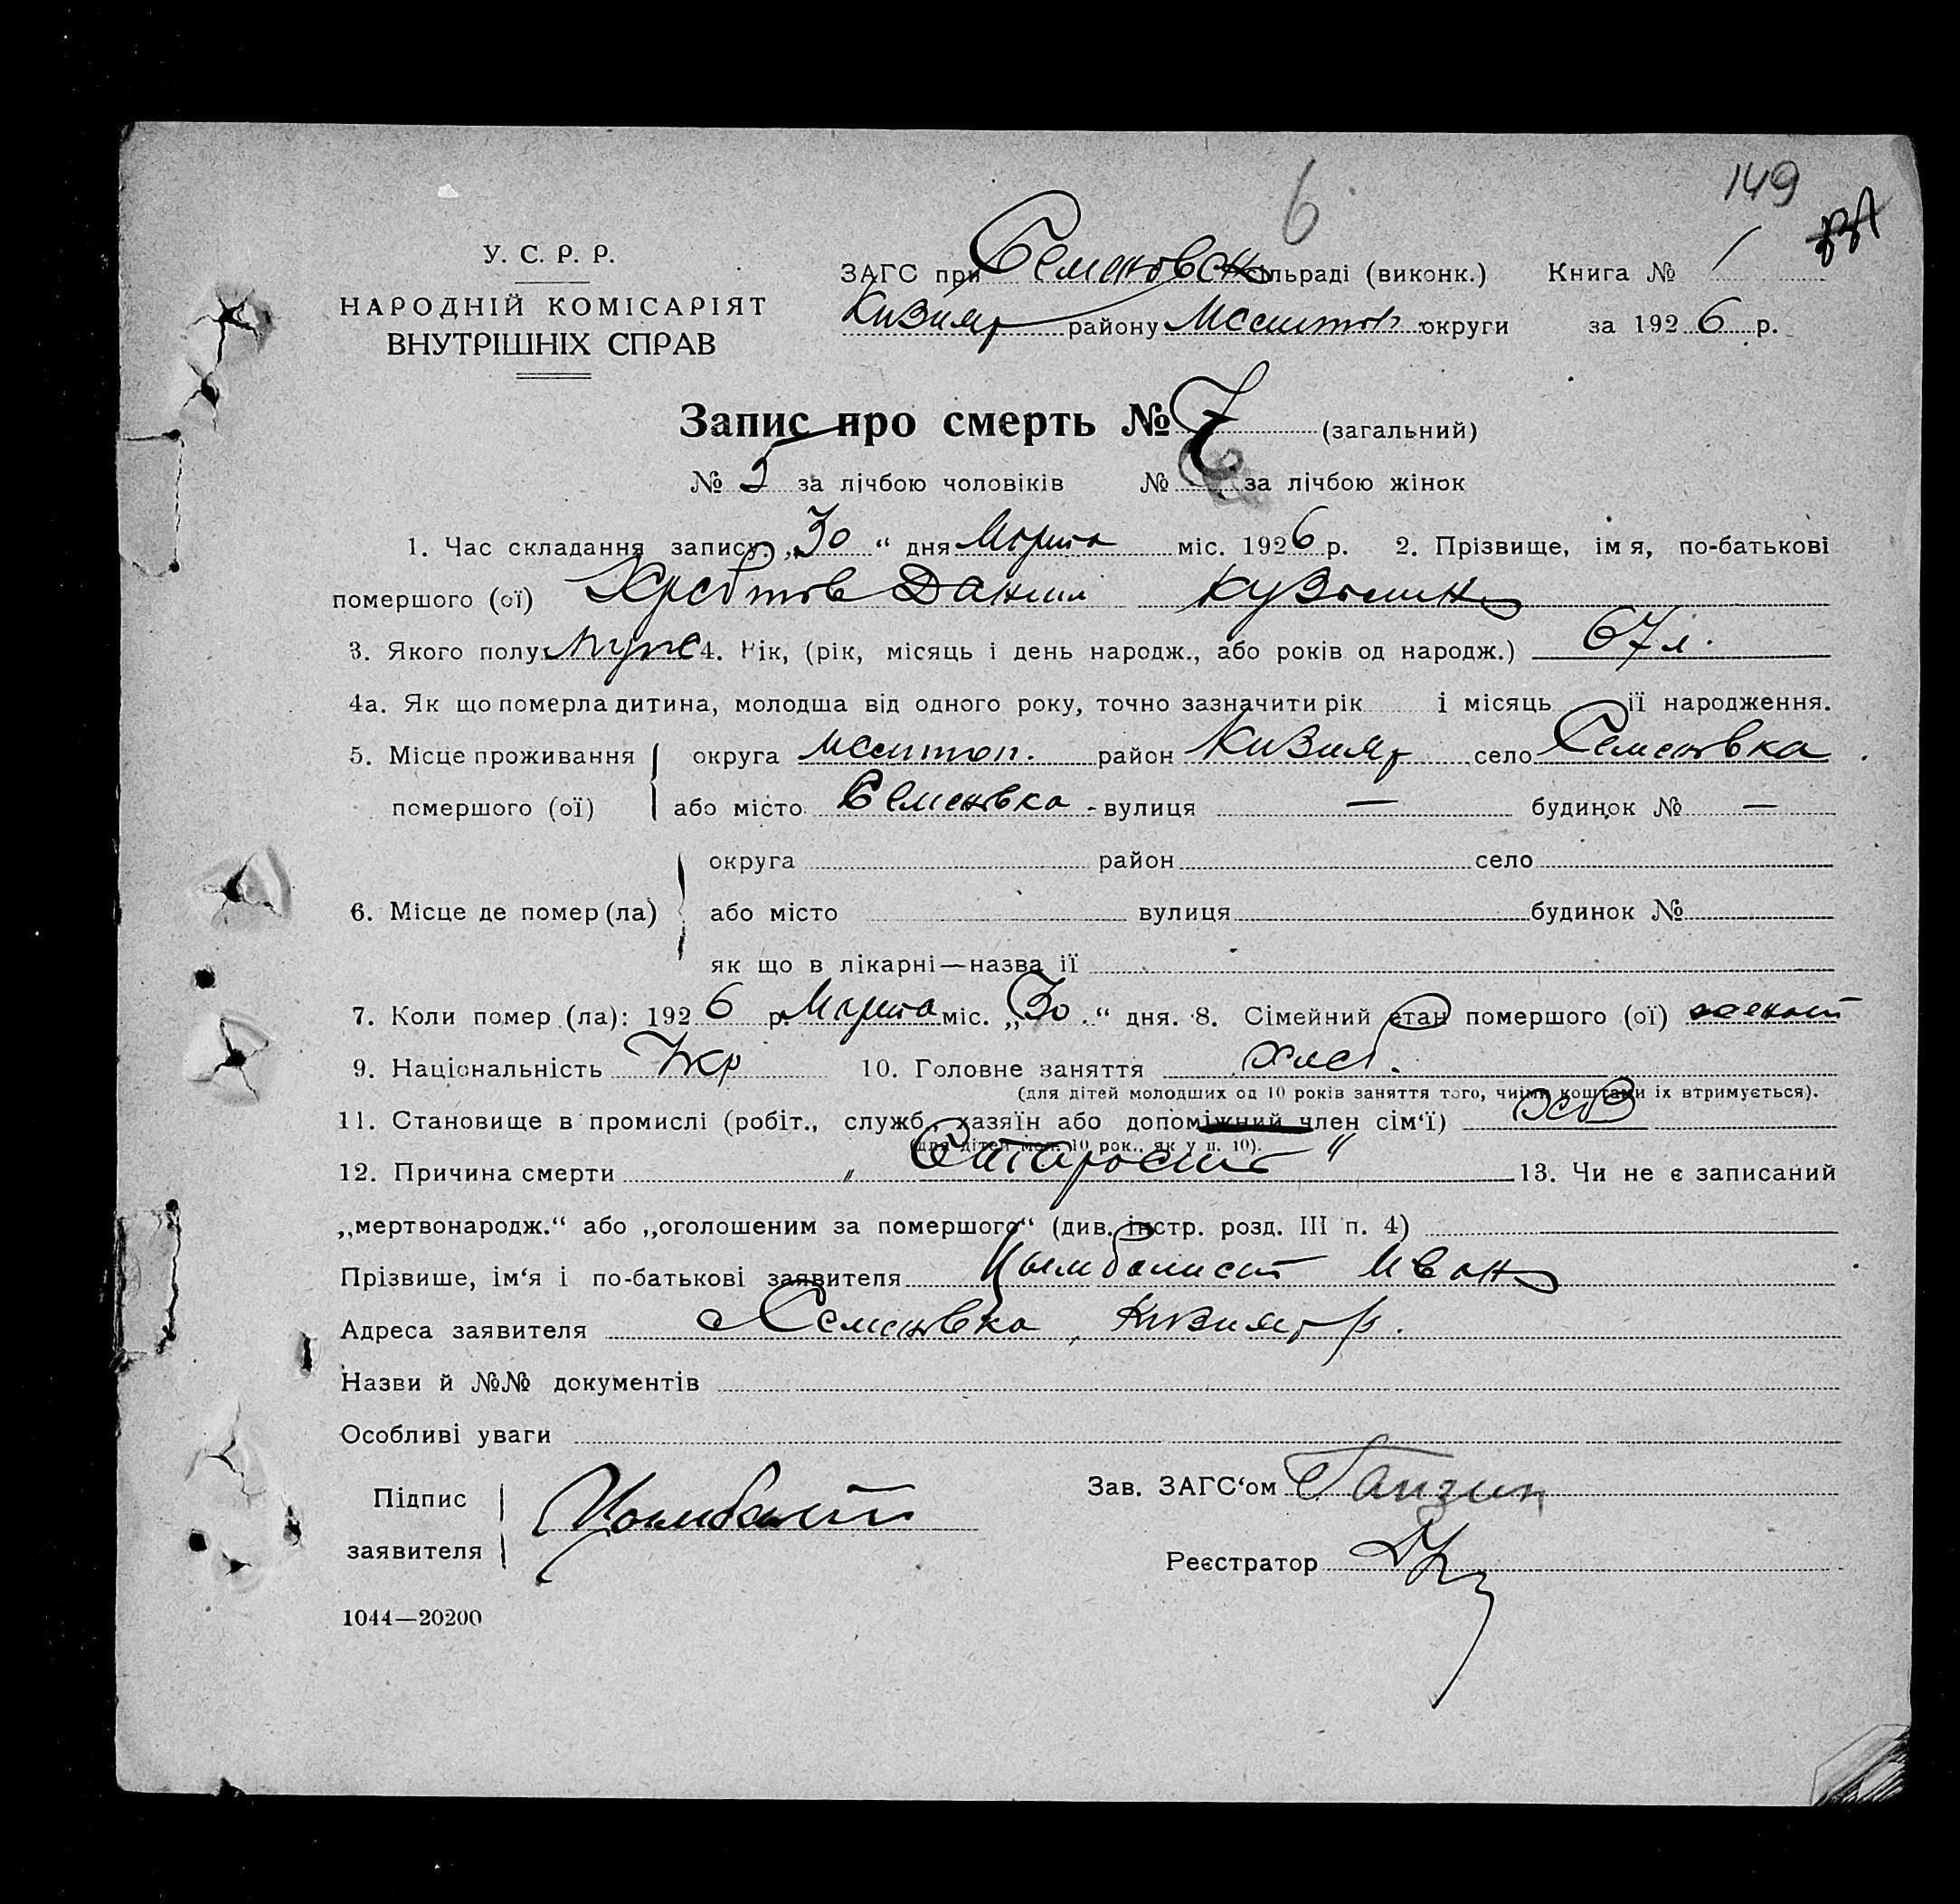 6
149
У. С. Р. Р.
НАРОДНІЙ КОМІСАРІЯТ
ВНУТРІШНІХ СПРАВ
ЗАГС при Семеновск сільраді (виконк.) Книга № 1
Кизияр району Мелитоп округи за 1926 р.
Запис про смерть № 7 (загальний)
№ 5 за лічбою чоловіків № за лічбою жінок
1. Час складання запису: „30“ дня Марта міс. 1926 р. 2. Прізвище, імя, по-батькові
помершого (ої) Хребтов Данил Кузьмич
3. Якого полу муж 4. Вік, (рік, місяць і день народж., або років од народж.) 67 л.
4а. Як що померла дитина, молодша від одного року, точно зазначити рік і місяць її народження.
5. Місце проживання округа Мелитоп. район Кизияр село Семеновка
помершого (ої) або місто Семеновка вулиця — будинок № —
округа район село
6. Місце де помер (ла) або місто вулиця будинок №
як що в лікарні—назва її
7. Коли помер (ла): 1926 р. Марта міс. „30“ дня. 8. Сімейний стан помершого (ої) женат
9. Національність Укр 10. Головне заняття хлеб.
(для дітей молодших од 10 років заняття того, чиїми коштами іх втримується).
11. Становище в промислі (робіт., служб., хазяїн або допоміжний член сім‘ї)
(для дітей мол. 10 рок., як у п. 10).
12. Причина смерти „Старость“ 13. Чи не є записаний
„мертвонародж.“ або „оголошеним за помершого“ (див. інстр. розд. III п. 4)
Прізвише, ім‘я і по-батькові заявителя Цымбалист Иван
Адреса заявителя Семеновка, Кизияр р.
Назви й №№ документів
Особливі уваги
Підпис
заявителя Цымбалист
Зав. ЗАГС‘ом
Реєстратор
1044—20200